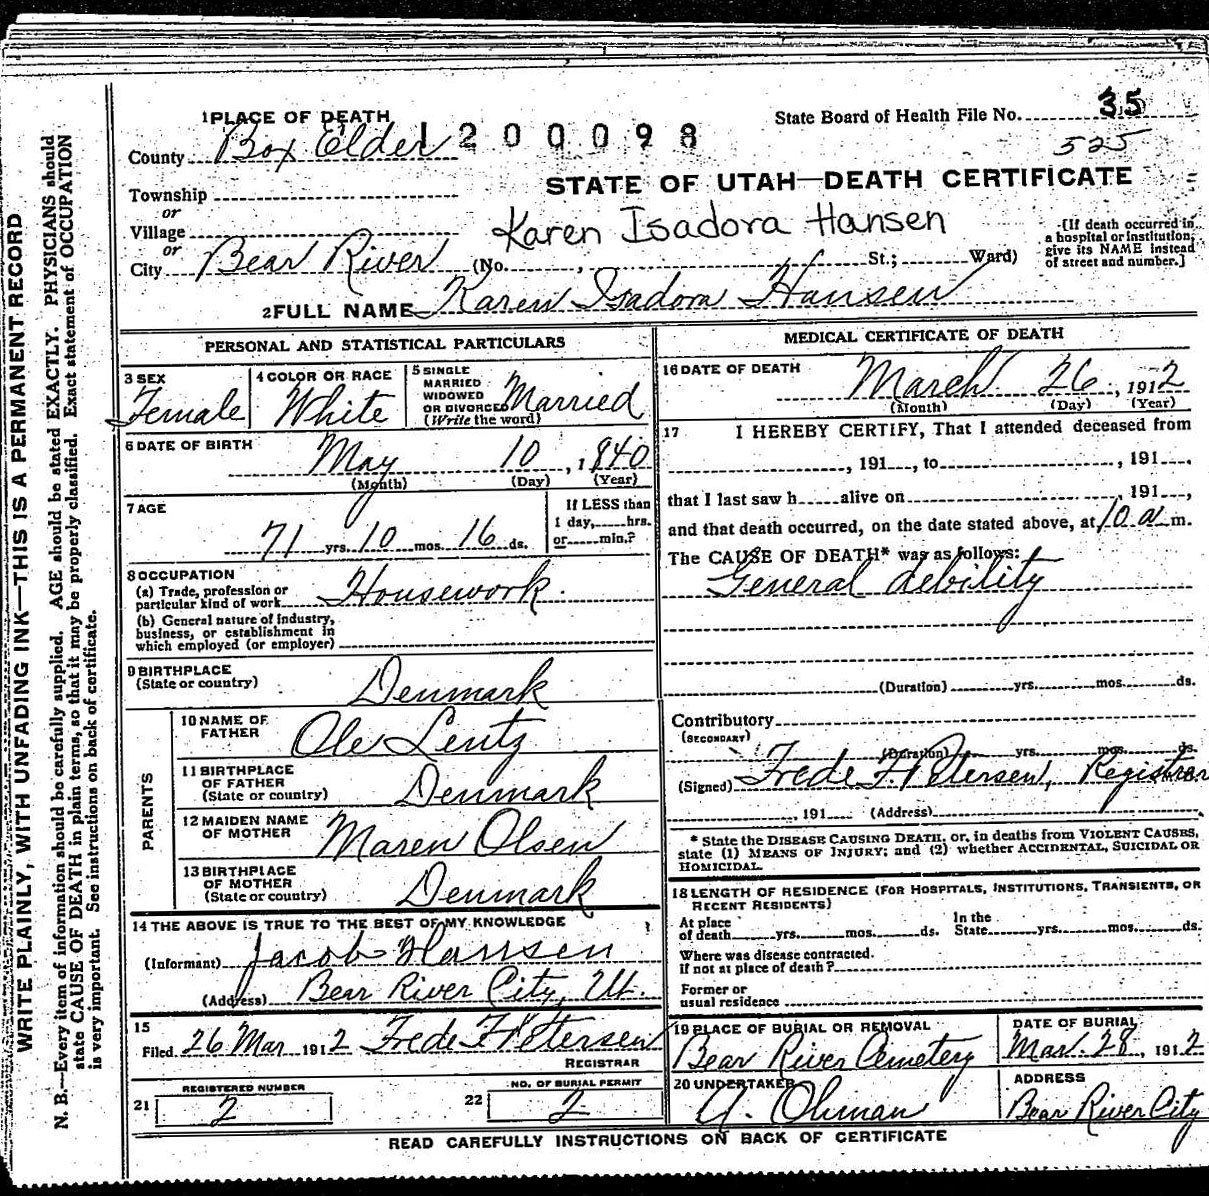 WRITE PLAINLY, WITH UNFADING INK—THIS IS A PERMANENT RECORD
N. B.—Every item of information should be carefully supplied. AGE should be stated EXACTLY. PHYSICIANS should
state CAUSE OF DEATH in plain terms, so that it may be properly classified. Exact statement of OCCUPATION
is very important. See instructions on back of certificate.
1 PLACE OF DEATH
County Box Elder
1200098
State Board of Health File No. 35
525
Township
or
Village
or
City Bear River (No. , St.; Ward)
STATE OF UTAH—DEATH CERTIFICATE
Karen Isadora Hansen
[If death occurred in
a hospital or institution,
give its NAME instead
of street and number.]
2 FULL NAME Karen Isadora Hansen
PERSONAL AND STATISTICAL PARTICULARS
3 SEX
Female
4 COLOR OR RACE
White
5 SINGLE
MARRIED
WIDOWED
OR DIVORCED
(Write the word)
Married
6 DATE OF BIRTH
May 10, 1840
(Month) (Day) (Year)
7 AGE
71 yrs. 10 mos. 16 ds.
If LESS than
1 day, hrs.
or min.?
8 OCCUPATION
(a) Trade, profession or
particular kind of work Housework.
(b) General nature of industry,
business, or establishment in
which employed (or employer)
9 BIRTHPLACE
(State or country)
Denmark
PARENTS
10 NAME OF
FATHER
Ole Lentz
11 BIRTHPLACE
OF FATHER
(State or country)
Denmark
12 MAIDEN NAME
OF MOTHER
Maren Olsen
13 BIRTHPLACE
OF MOTHER
(State or country)
Denmark
14 THE ABOVE IS TRUE TO THE BEST OF MY KNOWLEDGE
(Informant) Jacob Hansen
(Address) Bear River City, Ut.
15
Filed 26 Mar 1912 Frede F. Petersen
REGISTRAR
REGISTERED NUMBER
21 2
NO. OF BURIAL PERMIT
22 2
MEDICAL CERTIFICATE OF DEATH
16 DATE OF DEATH
March 26, 1912
(Month) (Day) (Year)
17 I HEREBY CERTIFY, That I attended deceased from
, 191 , to , 191 .
that I last saw h alive on , 191 ,
and that death occurred, on the date stated above, at 10 a m.
The CAUSE OF DEATH* was as follows:
General debility
(Duration) yrs. mos. ds.
Contributory
(SECONDARY)
(Duration) yrs. mos. ds.
(Signed) Frede F. Petersen, Registrar
, 191 (Address)
* State the DISEASE CAUSING DEATH, or, in deaths from VIOLENT CAUSES,
state (1) MEANS OF INJURY; and (2) whether ACCIDENTAL, SUICIDAL OR
HOMICIDAL.
18 LENGTH OF RESIDENCE (FOR HOSPITALS, INSTITUTIONS, TRANSIENTS, OR
RECENT RESIDENTS)
At place
of death yrs. mos. ds.
In the
State yrs. mos. ds.
Where was disease contracted.
if not at place of death?
Former or
usual residence
19 PLACE OF BURIAL OR REMOVAL
Bear River Cemetery
DATE OF BURIAL
Mar. 28, 1912
20 UNDERTAKER
A. Ohman
ADDRESS
Bear River City
READ CAREFULLY INSTRUCTIONS ON BACK OF CERTIFICATE